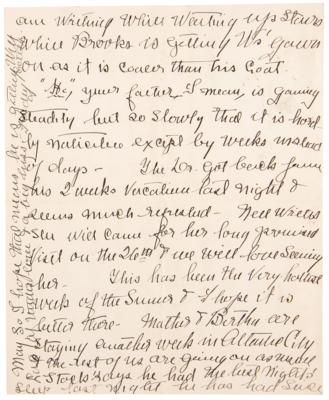 am writing while waiting up stairs
while Brooks is getting W's gown
on as it is cooler than his Coat.
"He," your father, I mean, is gaining
steadily but so slowly that it is hard
by except by weeks instead
of days — The Dr. got back from
his 2 weeks vacation last night &
seems much refreshed — Nell
will came for her long promised
visit on the 26th & we will love seeing
her. — This has been the very hottest
week of the Summer & I hope it is
better there — Mother & Bertha are
staying another week in Atlantic City
The rest of us are going on as usual
3 days he had the last night
last night he has had since
May 30 & I hope that means he is getting